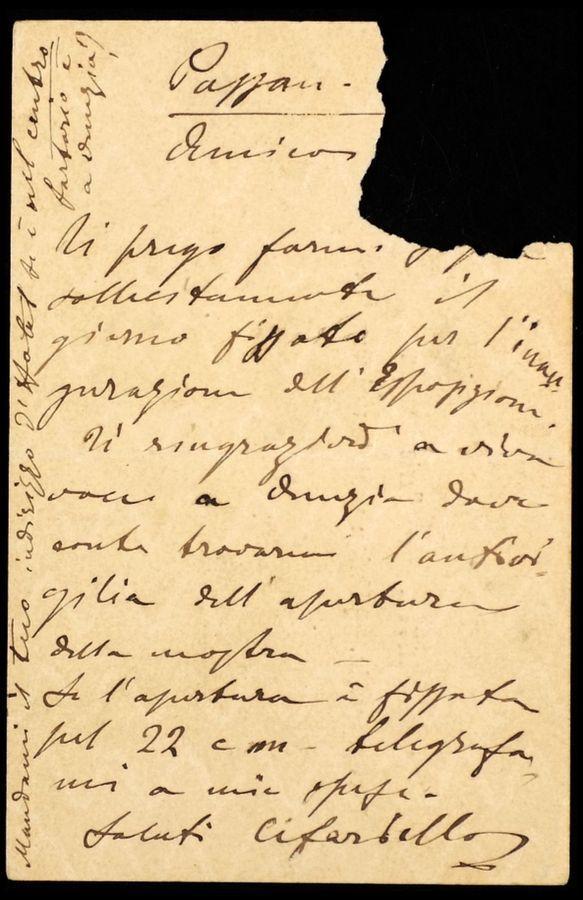 Ti prego farmi
sollecitamente il
giorno fissato per l'inau-
gurazione dell'Esposizione.
Ti ringrazierò a viva
voce a Venezia dove
conto trovarmi l'antivi-
gilia dell'apertura
della mostra —
Se l'apertura è fissata
pel 22 c m - telegrafa-
mi a mie spese -
Saluti Cifariello
Mandami il tuo indirizzo d'Hotel se è nel centro
Sartorio è
a Venezia?